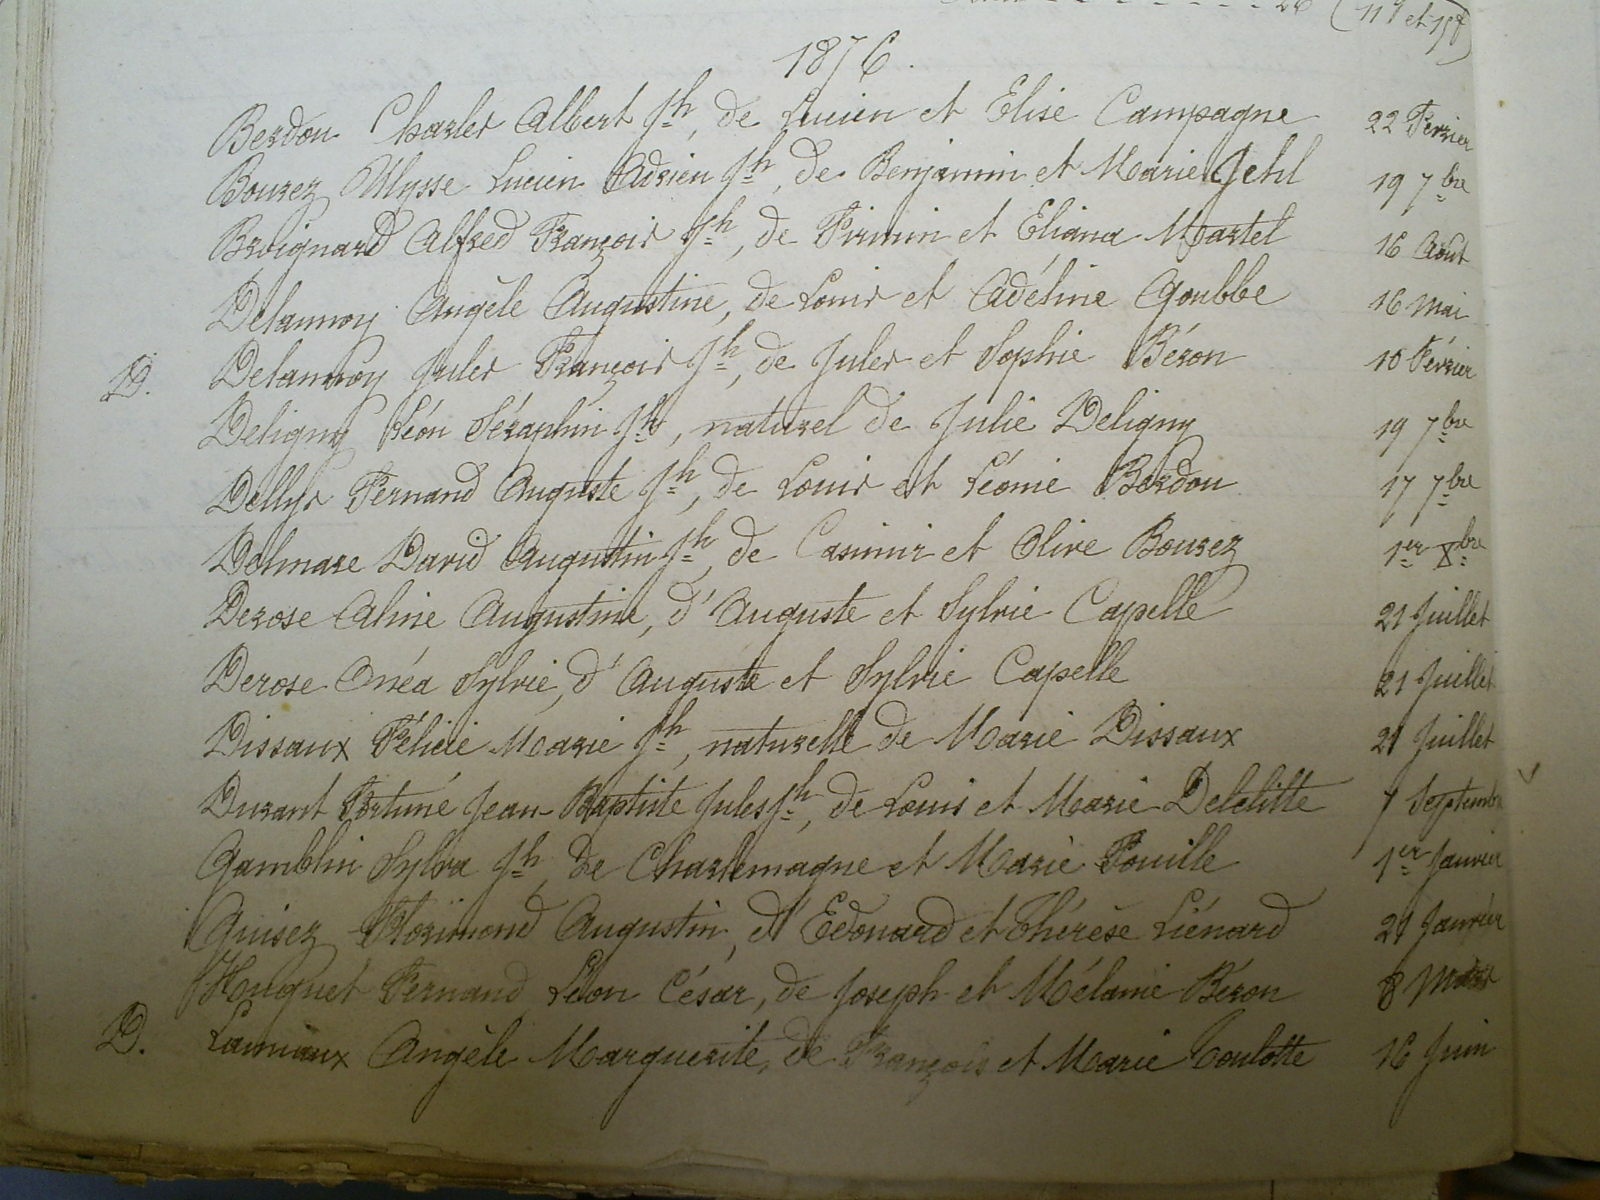 26 (11 g et 15 f)
1876.
Berdon Charles Albert Jh, de Lucien et Elise Campagne 22 Février
Bourez Ulysse Lucien Adrien Jh, de Benjamin et Marie Jehl 19 7bre
Broignard Alfred François Jh, de Firmin et Eliana Martel 16 Août
Delannoy Angèle Augustine, de Louis et Adéline Goubbe 16 Mai
D. Delannoy Jules François Jh, de Jules et Sophie Béron 10 Février
Deligny Léon Séraphin Jh, naturel de Julie Deligny 19 7bre
Dellys Fernand Auguste Jh, de Louis et Léonie Berdon 17 7bre
Delmare David Augustin Jh, de Casimir et Olive Bourez 1er Xbre
Derose Aline Augustine, d'Auguste et Sylvie Capelle 21 Juillet
Derose Onéa Sylvie, d'Auguste et Sylvie Capelle 21 Juillet
Dissaux Félicie Marie Jh, naturelle de Marie Dissaux 21 Juillet
Durant Fortuné Jean Baptiste Jules Jh, de Louis et Marie Delelitte 7 Septembre
Gamblin Sylva Jh, de Charlemagne et Marie Pouille 1er Janvier
Guisez Florimond Augustin, d'Edouard et Thérèse Liénard 21 Janvier
Huguet Fernand Léon César, de Joseph et Mélanie Béron 8 Mars
D. Lamiaux Angèle Marguerite, de François et Marie Coulotte 16 Juin